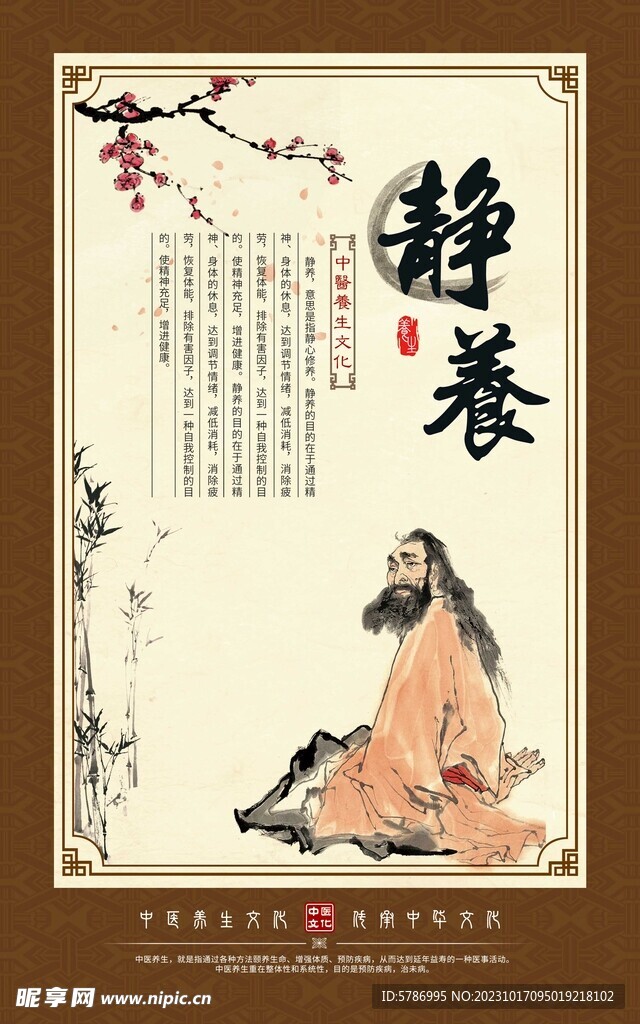 静養
養生
中醫養生文化
静养，意思是指静心修养。静养的目的在于通过精
神、身体的休息，达到调节情绪，减低消耗，消除疲
劳，恢复体能，排除有害因子，达到一种自我控制的目
的。使精神充足，增进健康。静养的目的在于通过精
神、身体的休息，达到调节情绪，减低消耗，消除疲
劳，恢复体能，排除有害因子，达到一种自我控制的目
的。使精神充足，增进健康。
中医养生文化 中医文化 传承中华文化
中医养生，就是指通过各种方法颐养生命、增强体质、预防疾病，从而达到延年益寿的一种医事活动。
中医养生重在整体性和系统性，目的是预防疾病，治未病。
昵享网 www.nipic.cn
ID:5786995 NO:20231017095019218102